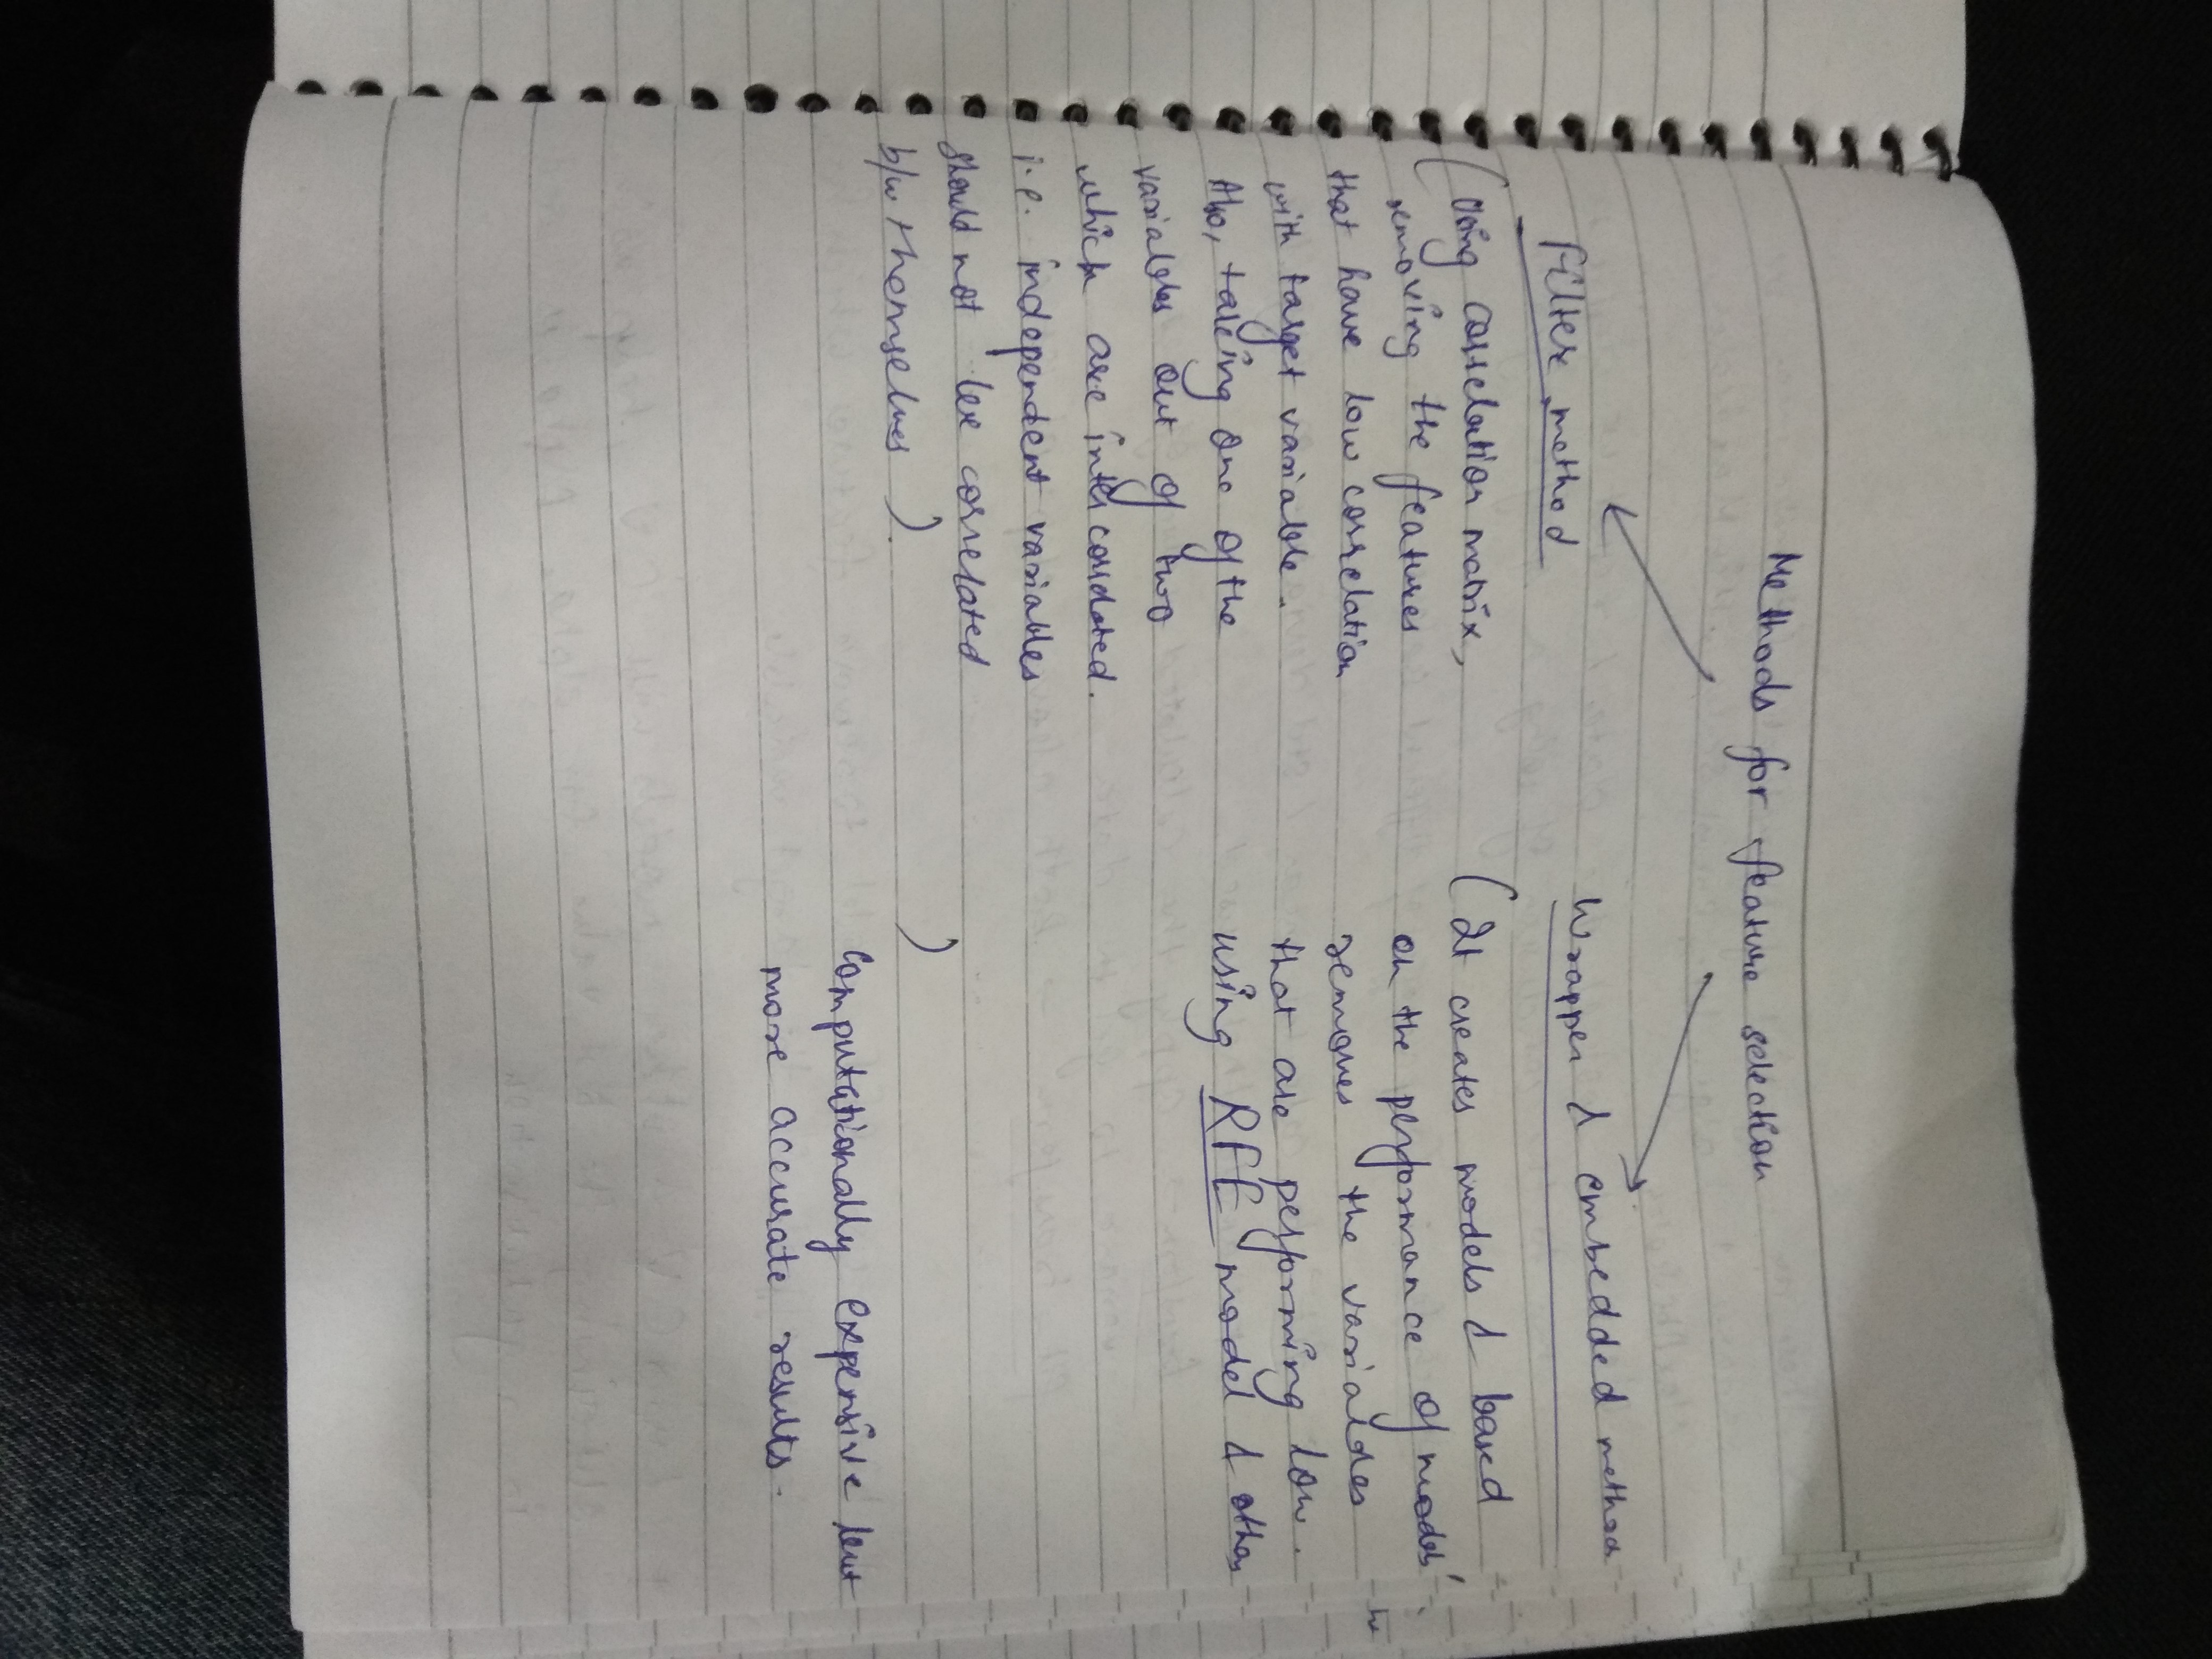 Methods for feature selection
Filter method
(Using correlation matrix,
removing the features
that have low correlation
with target variable.
Also, taking one of the
variables out of two
which are inter correlated.
i.e. independent variables
should not be correlated
b/w themselves ).
Wrapper & embedded method
(It creates models & based
on the performance of models,
removes the variables
that are performing low.
using RFE model & other
)
Computationally expensive but
more accurate results.